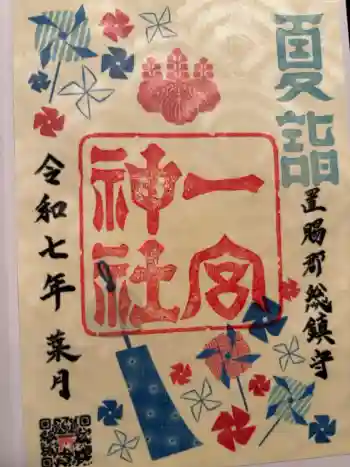 夏詣
置賜郡総鎮守
一宮
神社
令和七年 葉月